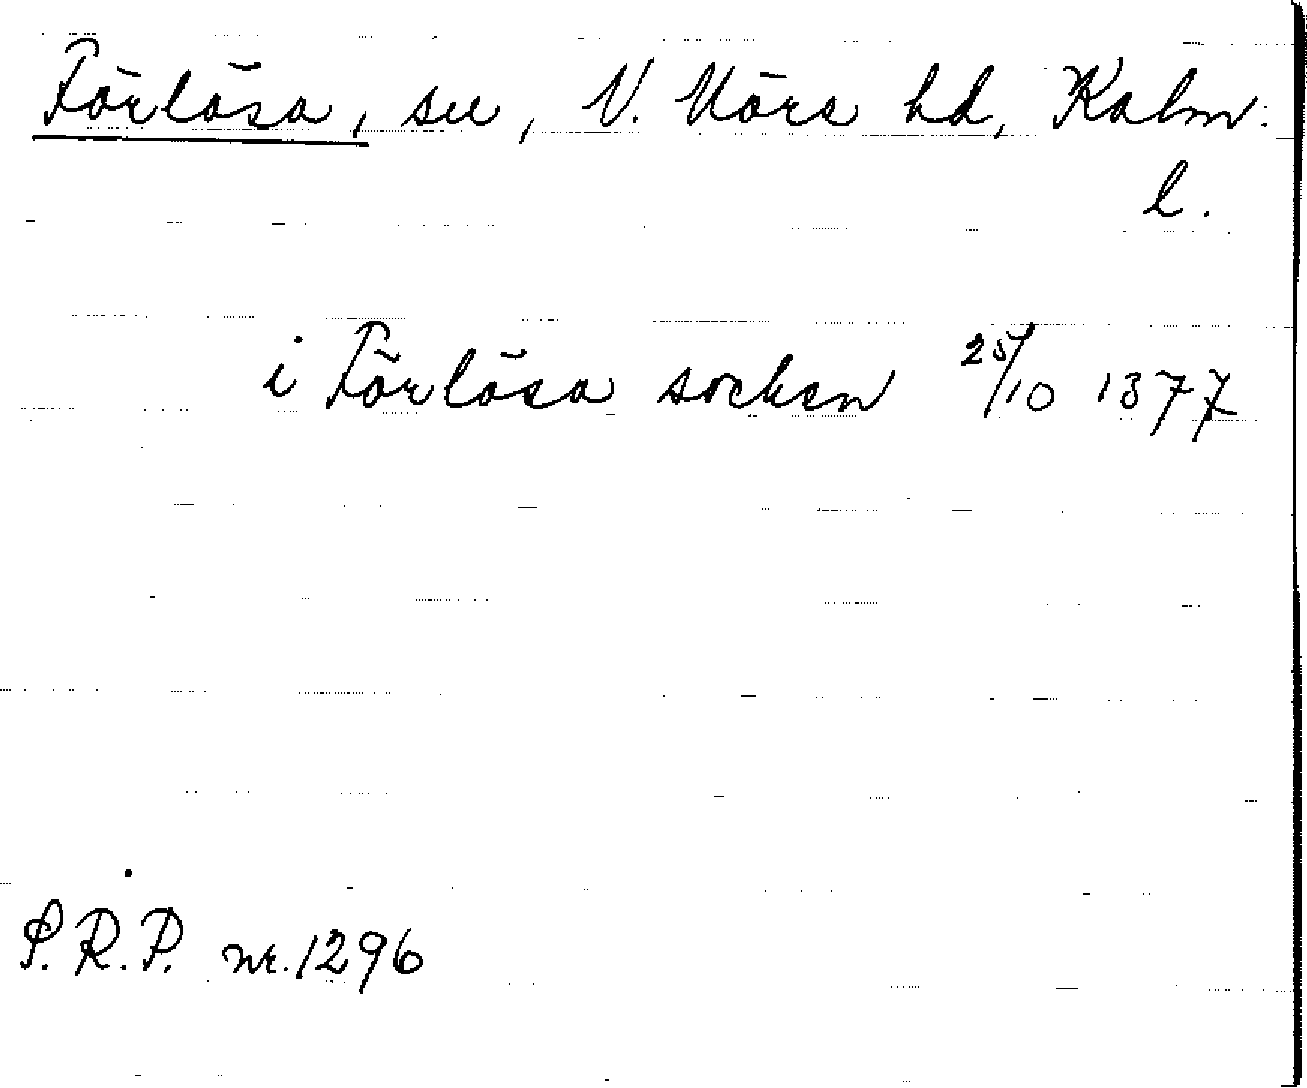 Förlösa, sn, N. Möre hd, Kalm.
l.
i Förlösa socken 25/10 1377
S.R.P. nr. 1296